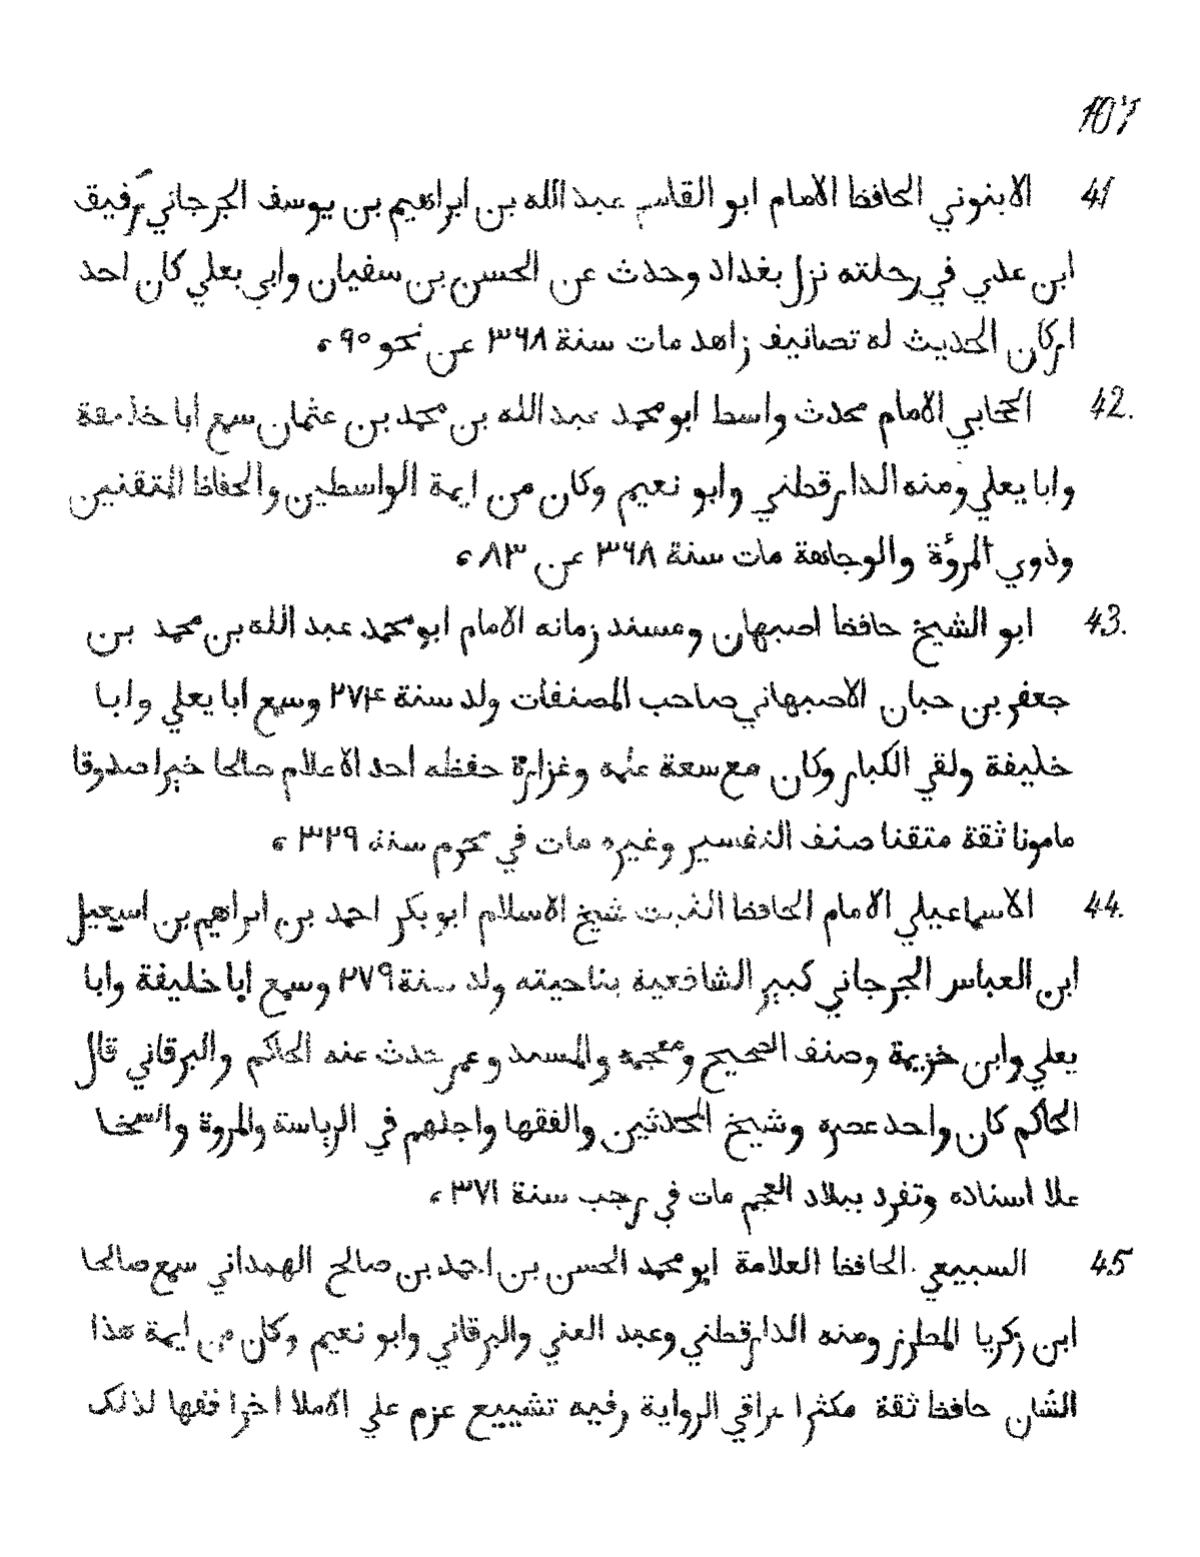 107
41 الابنوني الحافظ الامام ابو القاسم عبد الله بن ابراهيم بن يوسف الجرجاني رفيق
ابن عدي في رحلته نزل بغداد وحدث عن الحسن بن سفيان وابي يعلي كان احد
اركان الحديث له تصانيف زاهد مات سنة ٣٦٨ عن نحو ٩٥ ء
42. الامام محدث واسط ابو محمد عبد الله بن محمد بن عثمان سمع ابا خليفة
وابا يعلي ومنه الدارقطني وابو نعيم وكان من ايمة الواسطين والحفاظ المتقنين
وذوي المروّة والوجاهة مات سنة ٣٦٨ عن ٨٣ ء
43. ابو الشيخ حافظ اصبهان ومسند زمانه الامام ابو محمد عبد الله بن محمد بن
جعفر بن حبان الاصبهاني صاحب المصنفات ولد سنة ٢٧٤ وسمع ابا يعلي وابا
خليفة ولقي الكبار وكان مع سعة علمه وغزارة حفظه احد الاعلام صالحا خيرا صدوقا
مامونا ثقة متقنا صنف التفسير وغيره مات في محرم سنة ٣٢٩ ء
44. الاسماعيلي الامام الحافظ الثبت شيخ الاسلام ابو بكر احمد بن ابراهيم بن اسمعيل
ابن العباس الجرجاني كبير الشافعية بناحيته ولد سنة ٢٧٩ وسمع ابا خليفة وابا
يعلي وابن خزيمة وصنف الصحيح ومعجمه والمسند وعمر حدث عنه الحاكم والبرقاني قال
الحاكم كان واحد عصره وشيخ المحدثين والفقها واجلهم في الرياسة والمروة والسخا
علا اسناده وتفرد ببلاد العجم مات في رجب سنة ٣٧١ ء
45 السبيعي الحافظ العلامة ابو محمد الحسن بن احمد بن صالح الهمداني سمع صالحا
ابن زكريا المطرز ومنه الدارقطني وعبد الغني والبرقاني وابو نعيم وكان من ايمة هذا
الشان حافظا ثقة مكثرا الرواية وفيه تشييع عزم علي الاملا اخرا فقها لذلك